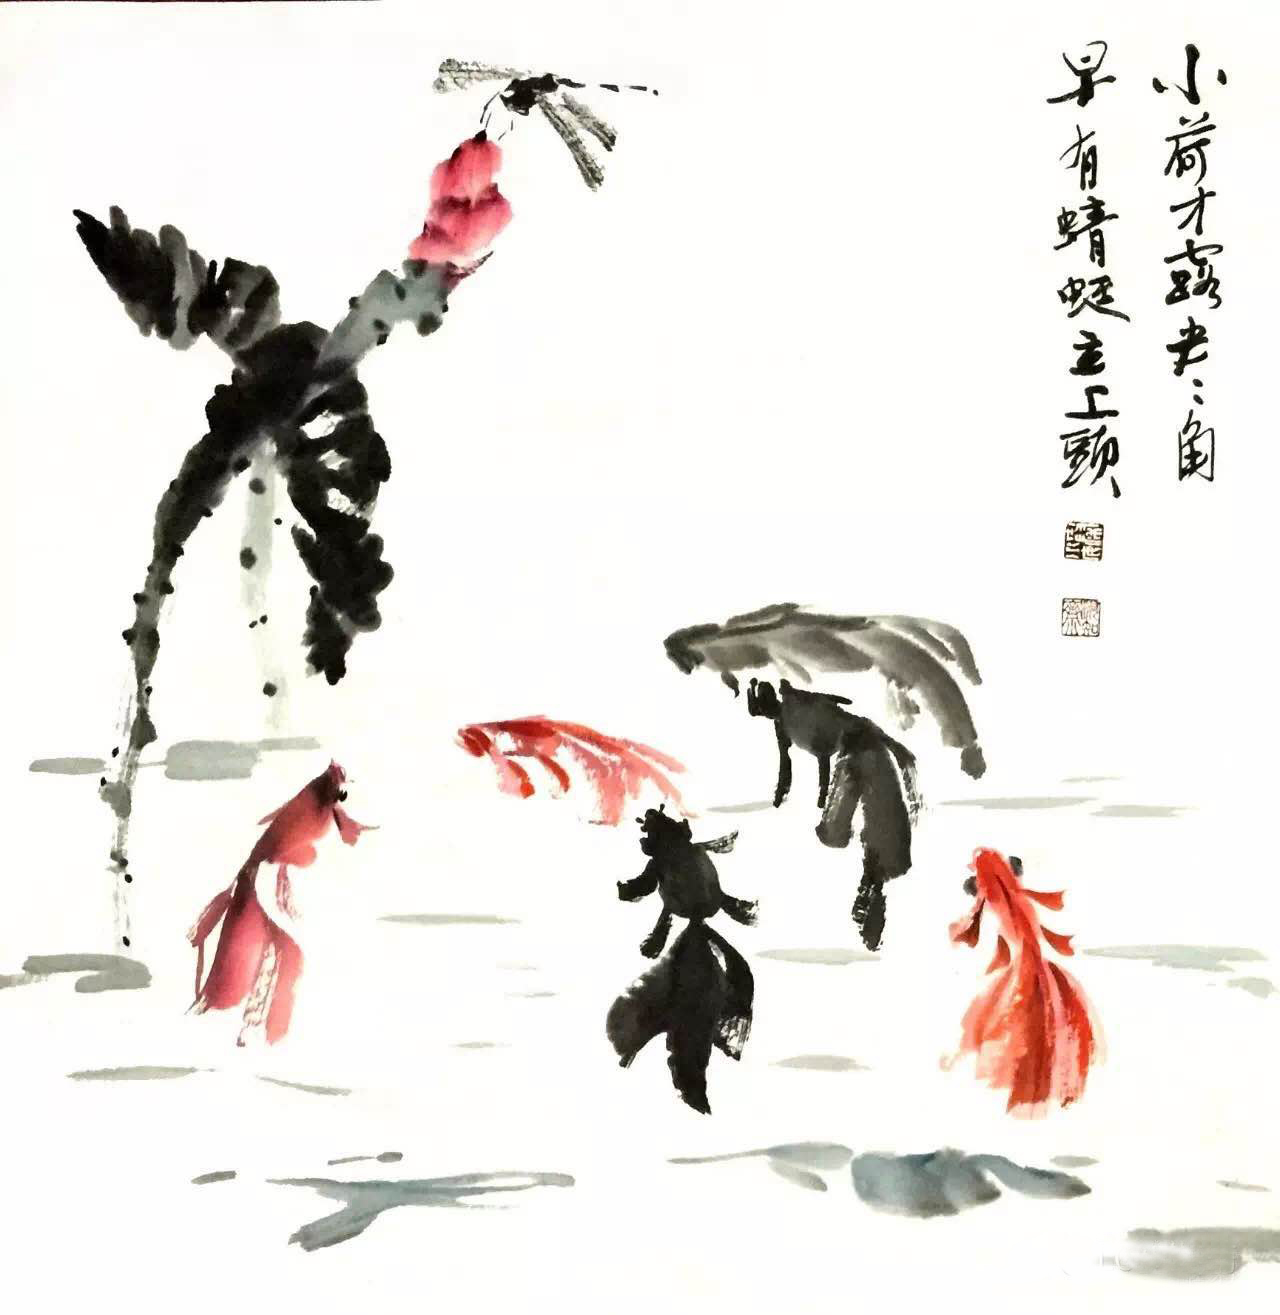 小荷才露尖〻角
早有蜻蜓立上頭